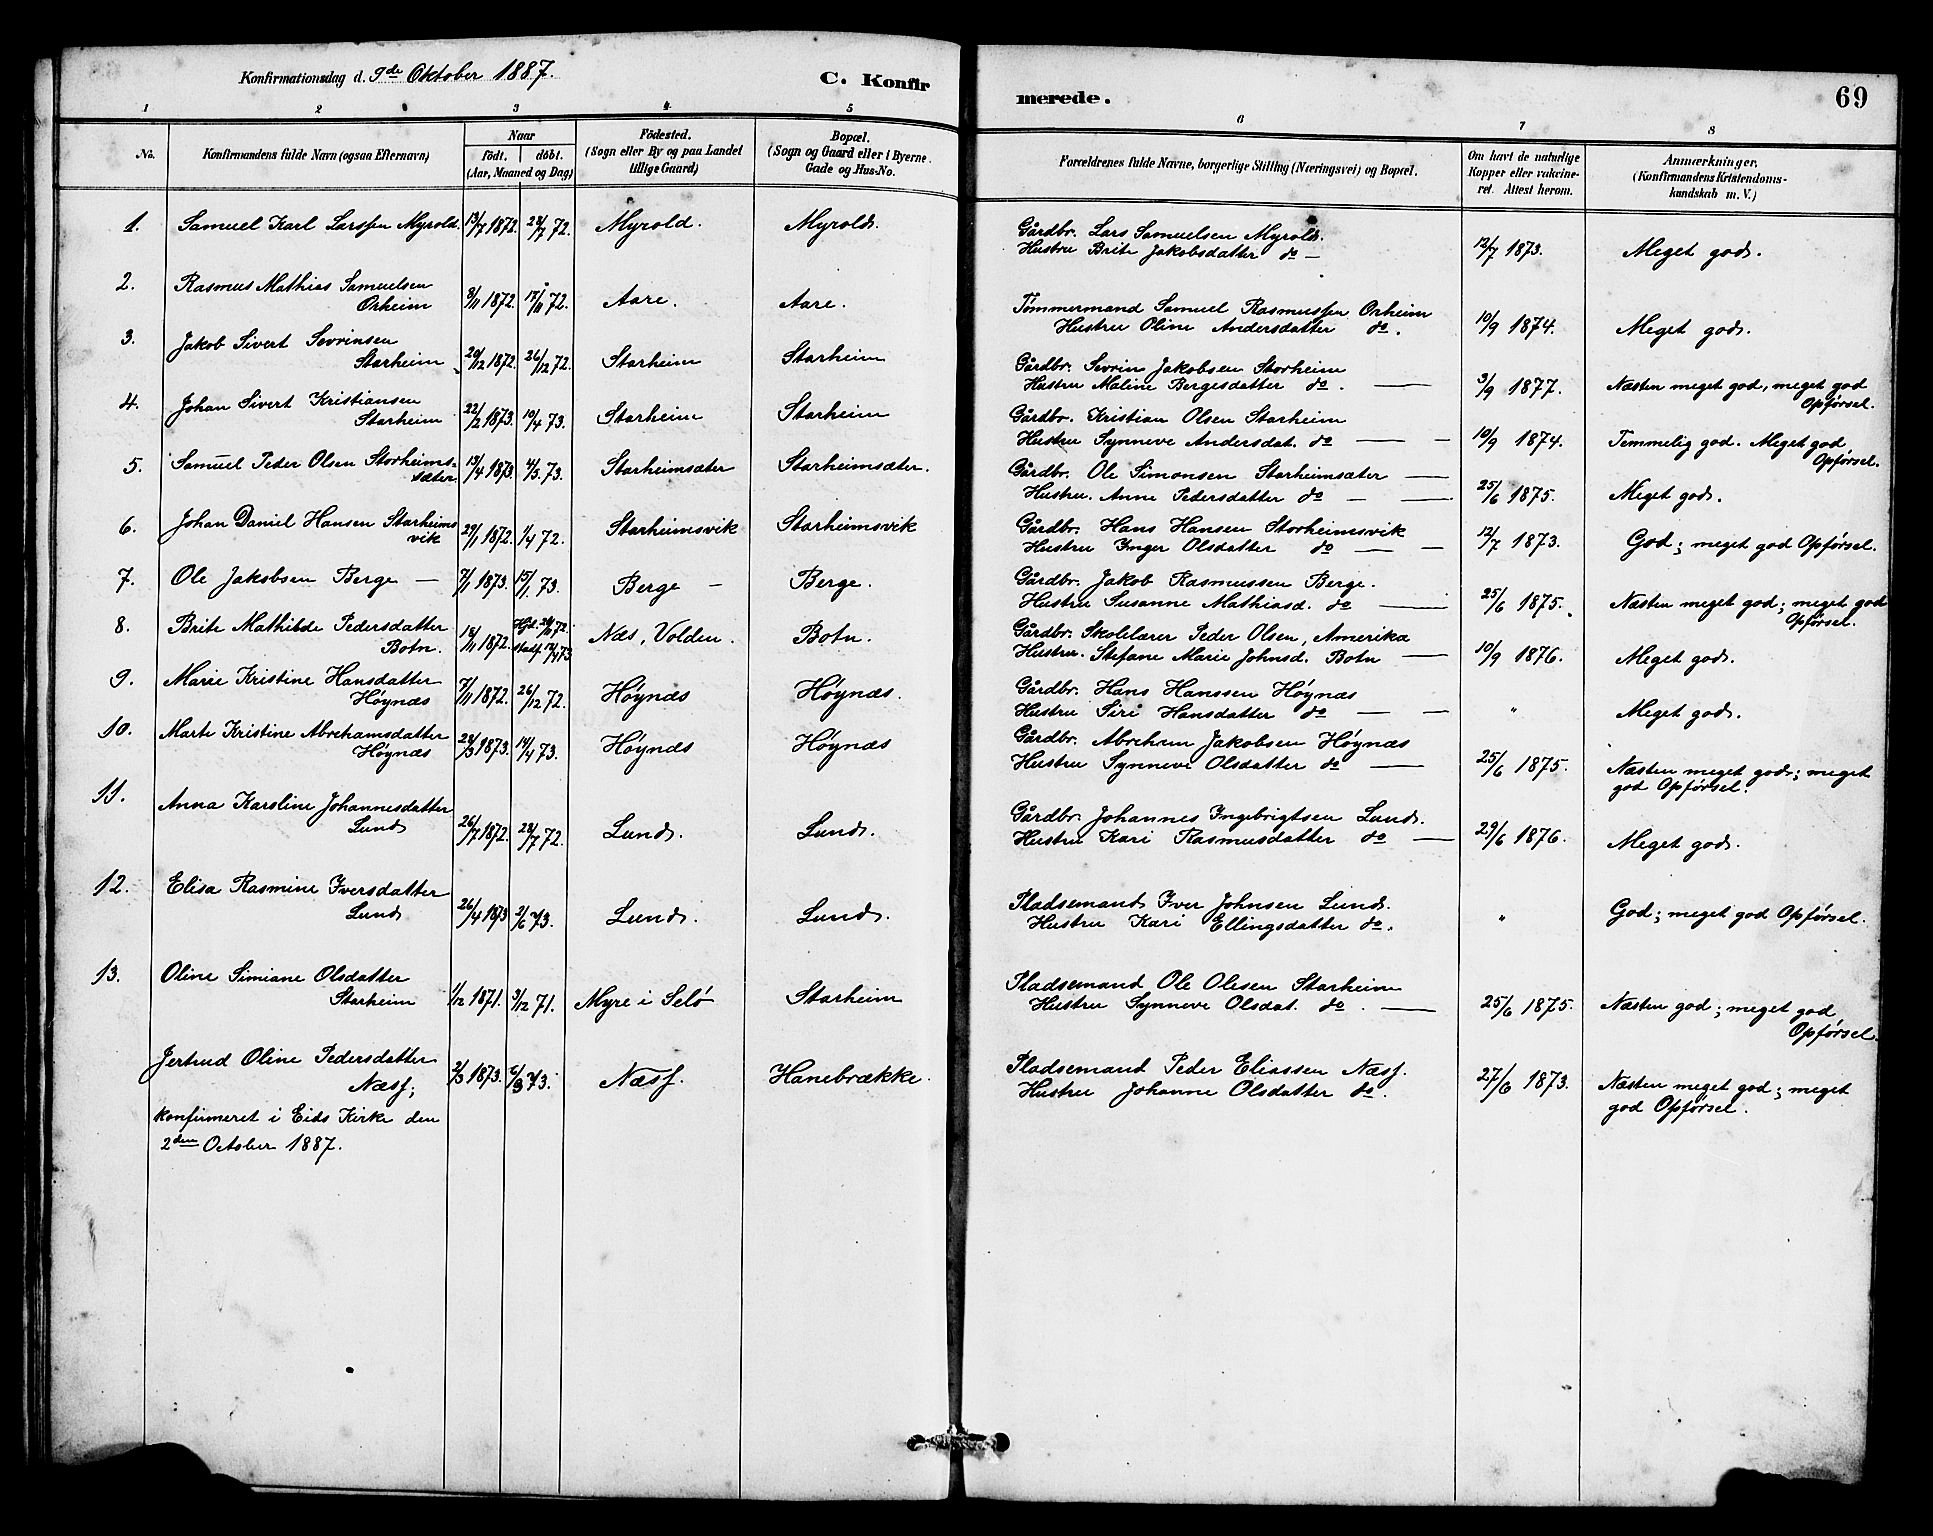 Konfirmationsdag d. 9de Oktober 1887.
C. Konfirmerede.
69
1 2 3 4 5 6 7 8
No.
Konfirmandens fulde Navn (ogsaa Efternavn)
Naar
födt. döbt.
(Aar, Maaned og Dag)
Födested.
(Sogn eller By og paa Landet
tillige Gaard)
Bopæl.
(Sogn og Gaard eller i Byerne
Gade og Hus-No.
Forældrenes fulde Navne, borgerlige Stilling (Næringsvei) og Bopæl.
Om havt de naturlige
Kopper eller vakcineret.
Attest herom.
Anmærkninger,
(Konfirmandens Kristendomskundskab
m. V.)
1. Samuel Karl Larssen Myrold. 13/7 1872. 28/7 72. Myrold. Myrold.
Gårdbr. Lars Samuelsen Myrold.
Hustru Brite Jakobsdatter do — 12/7 1873. Meget god.
2. Rasmus Mathias Samuelsen
Orheim 3/11 1872. 17/11 72. Aare. Aare.
Tømmermand Samuel Rasmussen Orheim
Hustru Oline Andersdatter do. 10/9 1874. Meget god.
3. Jakob Sivert Sevrinsen
Starheim 20/12 1872. 26/12 72. Starheim Starheim
Gårdbr. Sevrin Jakobsen Storheim
Hustru Maline Bergesdatter do. — 3/9 1877. Næsten meget god, meget god
Opførsel.
4. Johan Sivert Kristiansen
Starheim 22/2 1873. 10/4 73. Starheim Starheim
Gårdbr. Kristian Olsen Starheim
Hustru Synneve Andersdat. do — 10/9 1874. Temmelig god. Meget god
Opførsel.
5. Samuel Peder Olsen Storheims-
sæter. 13/4 1873. 4/5 73. Starheimsæter Starheimsæter.
Gårdbr. Ole Simonsen Starheimsæter —
Hustru. Anne Pedersdatter do — 25/6 1875. Meget god.
6. Johan Daniel Hansen Starheims
vik 29/1 1872. 1/4 72. Starheimsvik Starheimsvik
Gårdbr. Hans Hansen Storheimsvik
Hustru Inger Olsdatter do — 12/7 1873. God; meget god Opførsel.
7. Ole Jakobsen Berge — 7/1 1873. 15/1 73. Berge — Berge.
Gårdbr. Jakob Rasmussen Berge.
Hustru Susanne Mathiasd. do — 25/6 1875. Næsten meget god; meget god
Opførsel.
8. Brite Mathilde Pedersdatter
Botn. 18/11 1872. Hjd. 24/11 72. Stadf. 14/4 73 Næs, Volden. Botn.
Gårdbr. Skolelærer Peder Olsen, Amerika
Hustru. Stefane Marie Johnsd. Botn — 10/9 1876. Meget god.
9. Marie Kristine Hansdatter
Höynæs 7/11 1872. 26/12 72. Höynæs Höynæs.
Gårdbr. Hans Hanssen Höynæs
Hustru Siri Hansdatter do — " Meget god.
10. Marte Kristine Abrehamsdatter
Höynæs 24/3 1873. 14/4 73. Höynæs Höynæs
Gårdbr. Abreham Jakobsen Höynæs
Hustru Synneve Olsdatter do — 25/6 1875. Næsten meget god; meget
god Opførsel.
11. Anna Karoline Johannesdatter
Lund 26/7 1872. 28/7 72. Lund. Lund.
Gårdbr. Johannes Ingebrigtsen Lund.
Hustru Kari Rasmusdatter do — 29/6 1876. Meget god.
12. Elisa Rasmine Iversdatter
Lund 26/4 1873 2/6 73. Lund. Lund.
Pladsemand Iver Johnsen Lund.
Hustru Kari Ellingsdatter do. " God; meget god Opførsel.
13. Oline Simiane Olsdatter
Starheim 1/12 1871. 3/12 71. Myre i Selö Starheim
Pladsemand Ole Olesen Starheim
Hustru Synneve Olsdat. do. — 25/6 1875. Næsten god; meget god
Opførsel.
Jertrud Oline Pedersdatter
Næsf; 2/3 1873. 6/3 73. Næsf. Hanebrække.
Pladsemand Peder Eliassen Næsf.
Hustru Johanne Olsdatter do. 27/6 1873. Næsten meget god; meget
god Opførsel.
konfirmeret i Eids Kirke den
2den October 1887.